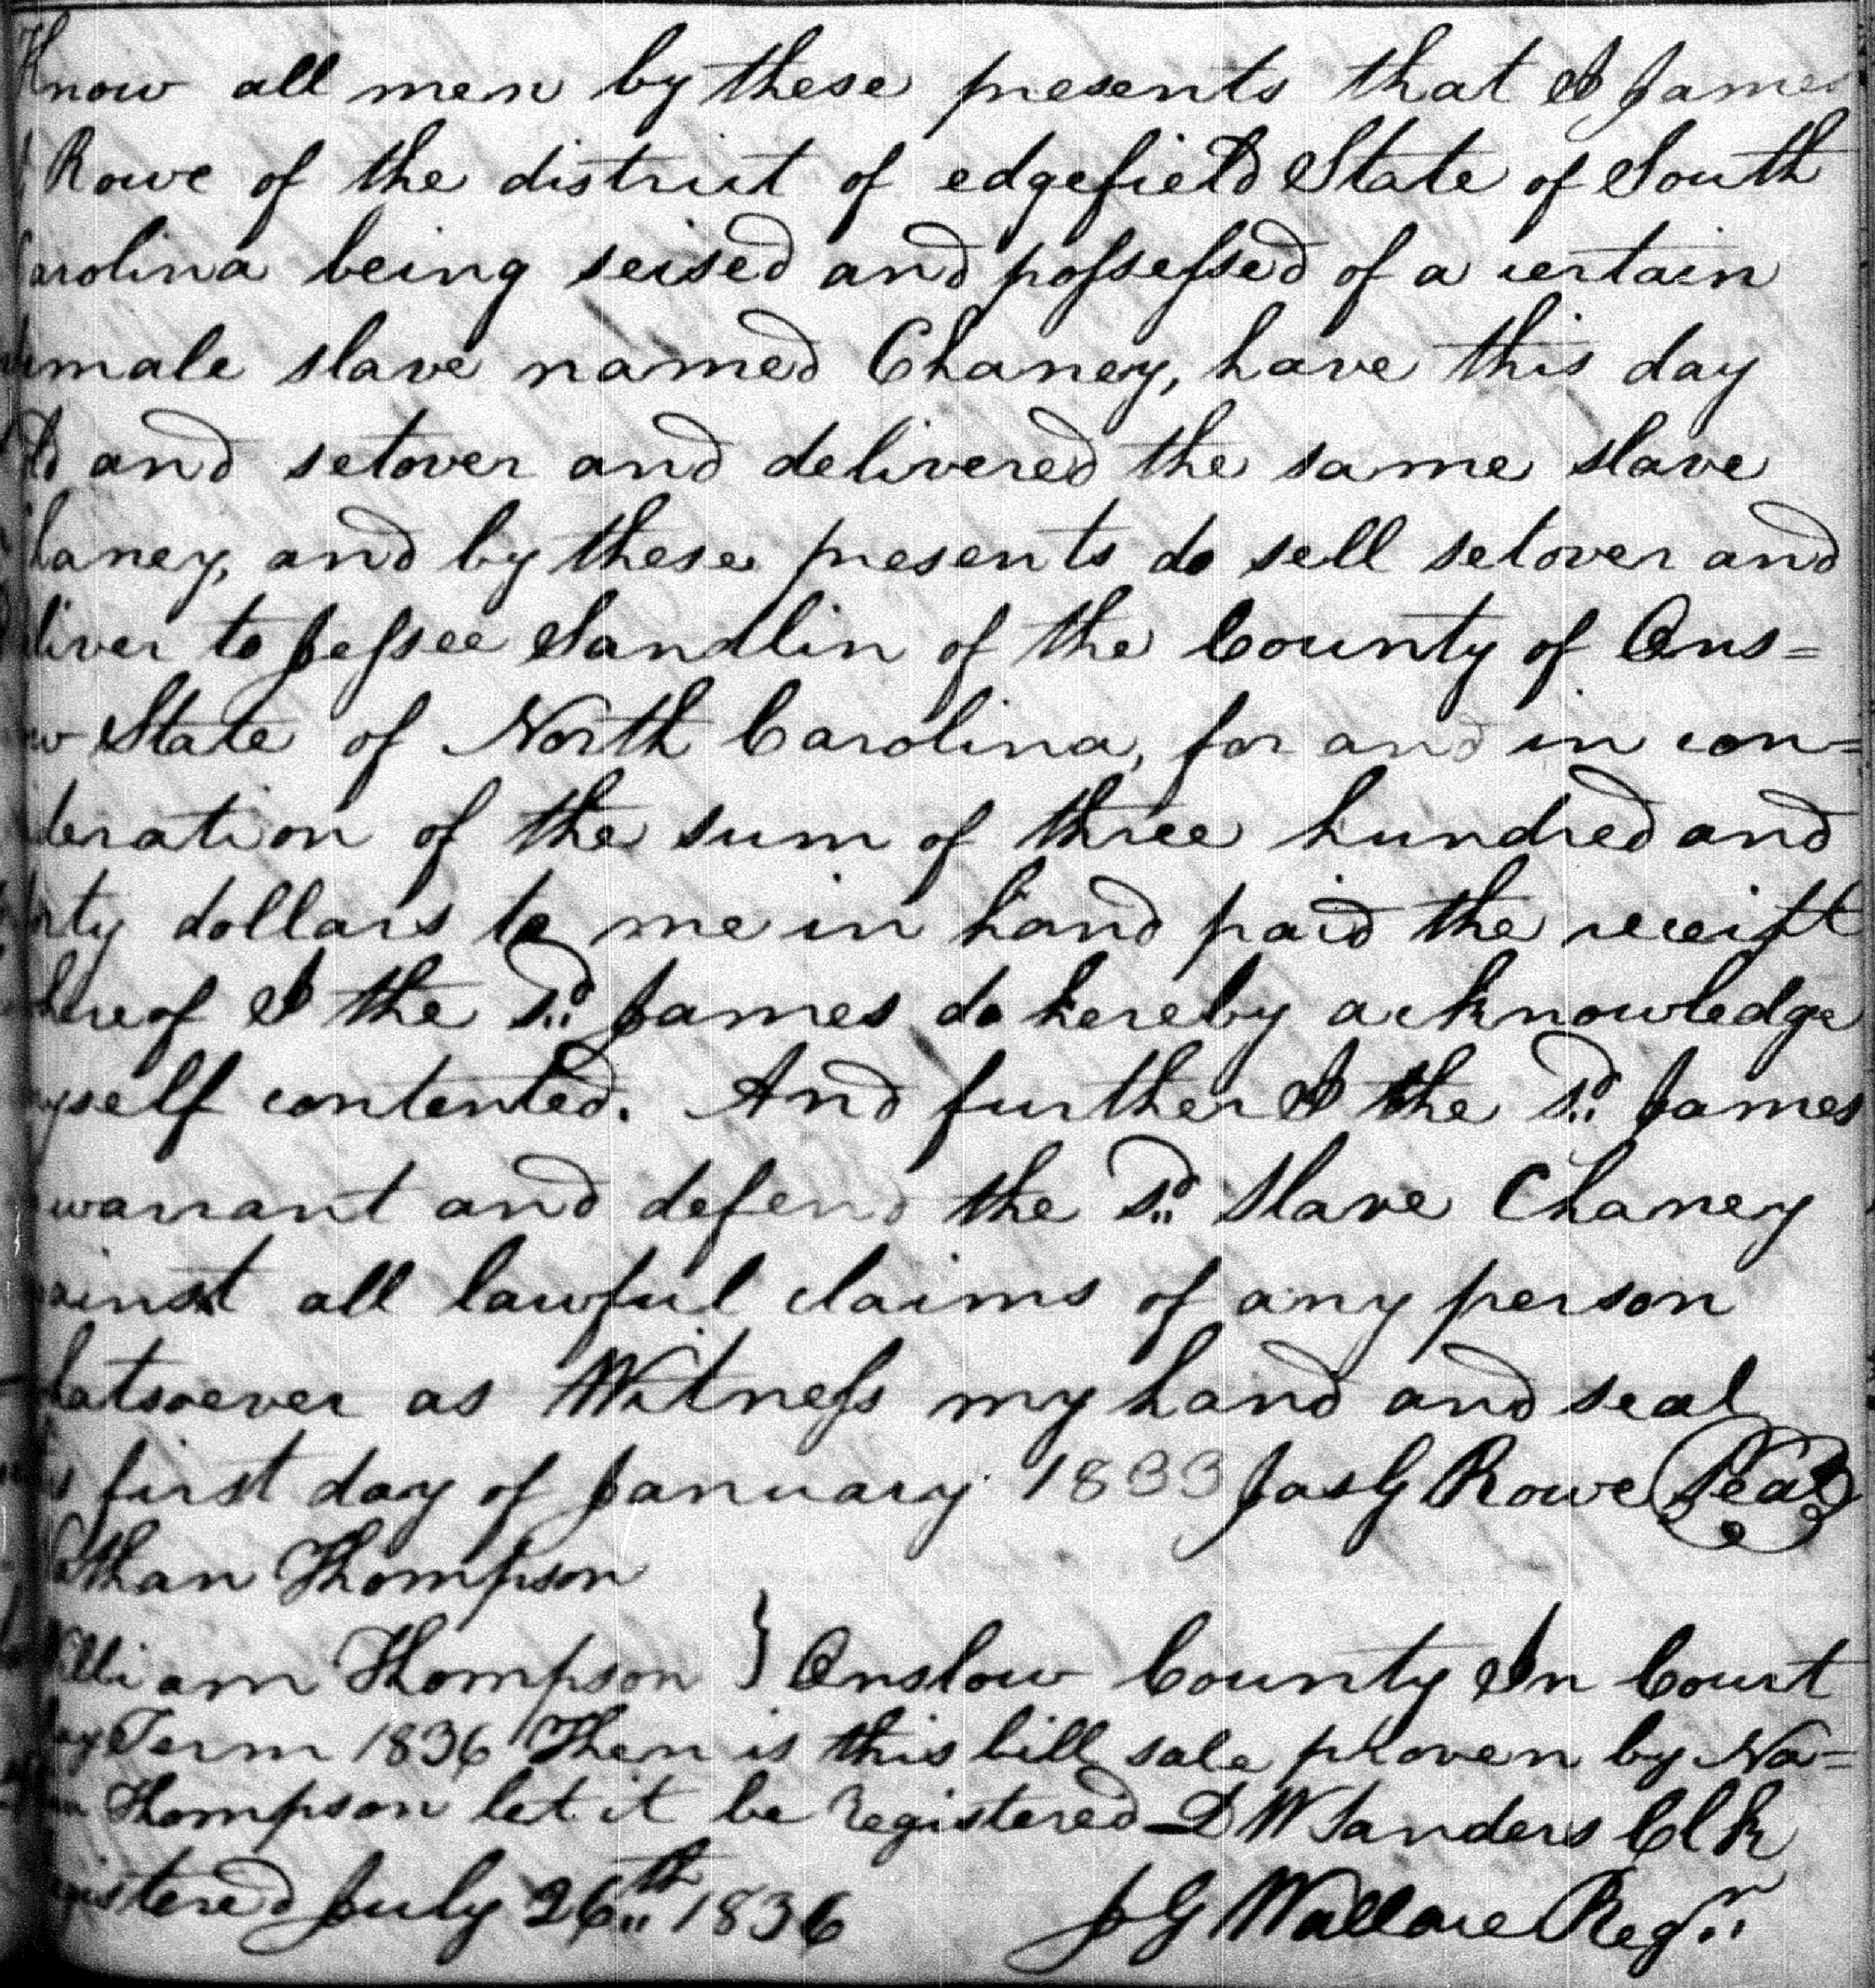 Know all men by these presents that I James
G Rowe of the district of edgefield State of South
Carolina being seised and possessed of a certain
female slave named Chaney, have this day
ld and setover and delivered the same slave
haney, and by these presents do sell setover and
liver to Jessee Sandlin of the County of Ons=
w State of North Carolina, for and in con=
deration of the sum of three hundred and
rty dollars to me in hand paid the receipt
hereof I the sd. James do hereby acknowledge
yself contented. And further I the sd. James
warrant and defend the sd. slave Chaney
ainst all lawful claims of any person
hatsoever as Witness my hand and seal
s first day of January 1833 Jas G Rowe Seal
athan Thompson
illiam Thompson } Onslow County In Court
ay Term 1836 Then is this bill sale proven by Na=
an Thompson let it be registered D W Sanders Clk
gistered July 26th 1836 J G Wallace Regr.